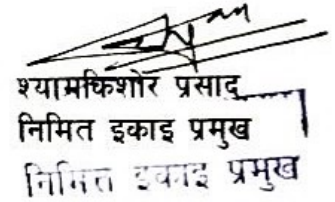 श्यामकिशोर प्रसाद
निमित इकाइ प्रमुख
निमित्त इकाइ प्रमुख